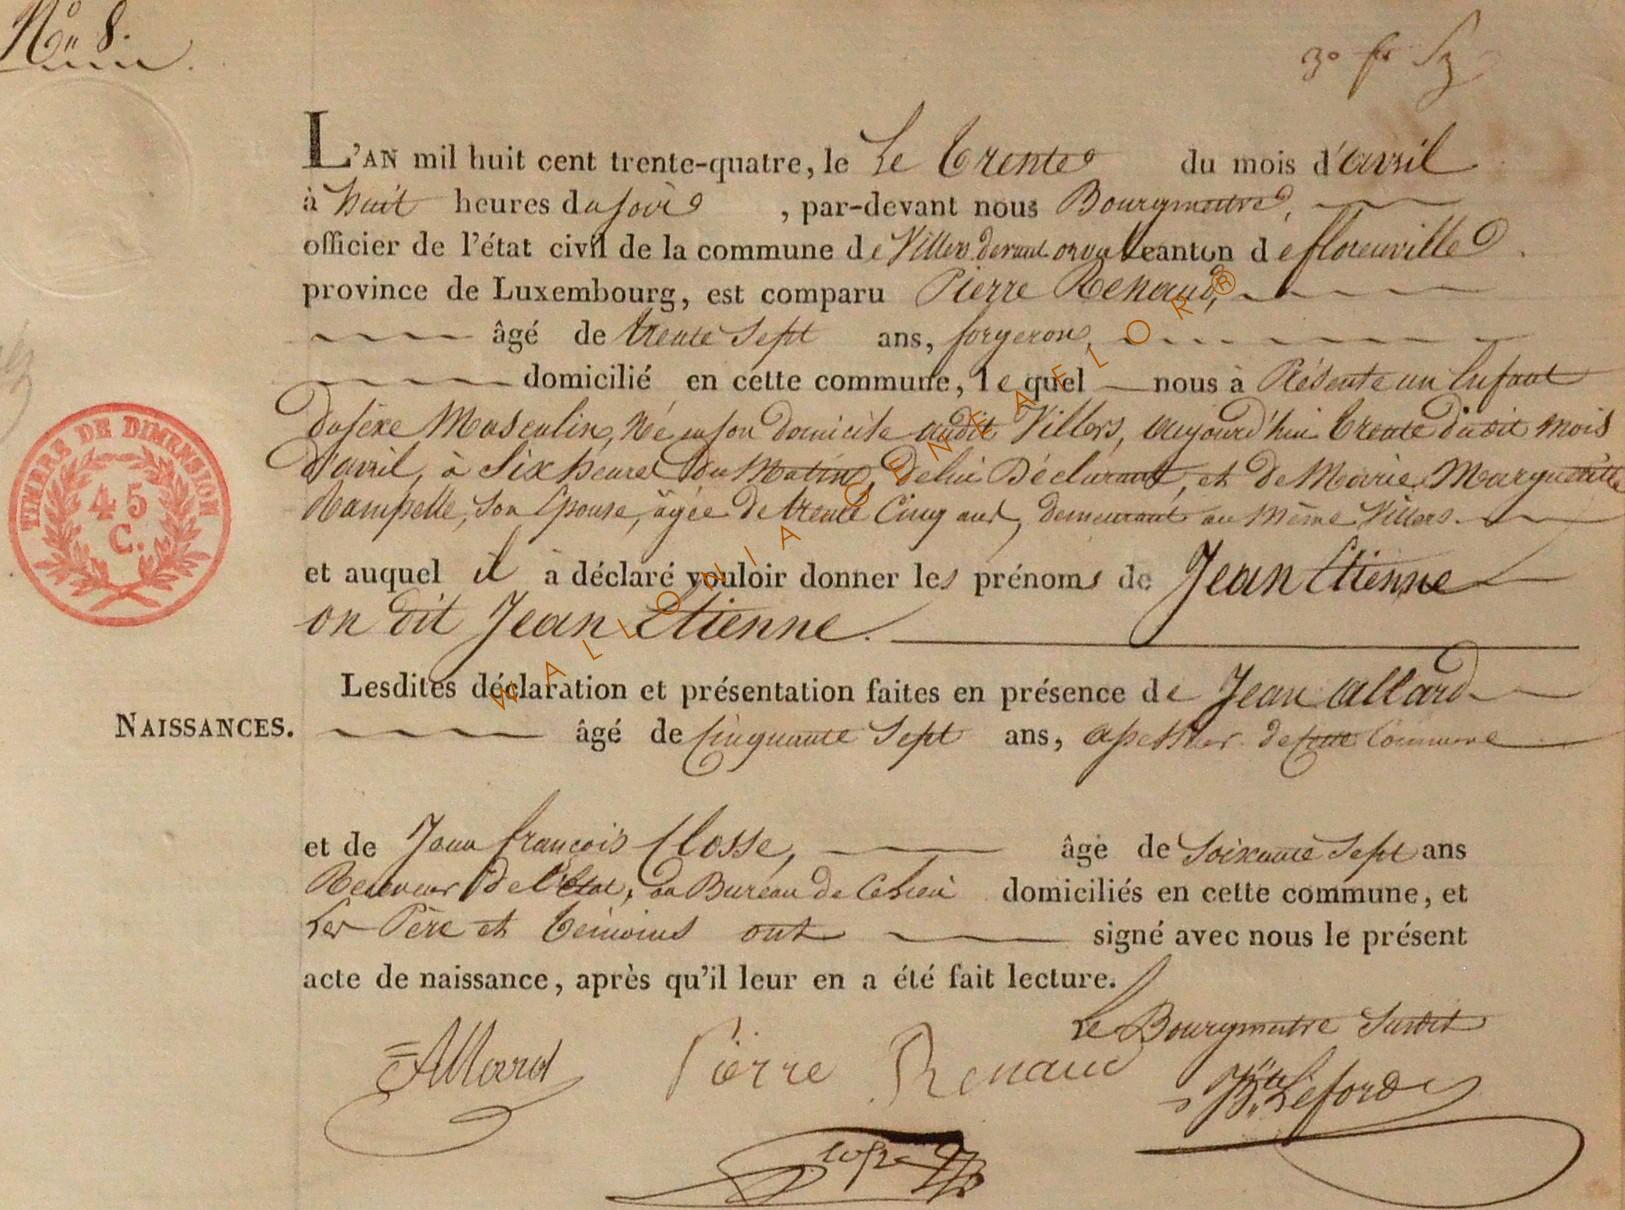 No 8.
L'AN mil huit cent trente-quatre, le Le trente du mois d'avril
à huit heures du soir, par-devant nous Bourgmestre,
officier de l'état civil de la commune de Villers devant orval canton de florenville
province de Luxembourg, est comparu Pierre Renaud,
âgé de trente sept ans, forgeron
domicilié en cette commune, lequel nous à Présenté un Enfant
du sexe Masculin, Né en son domicile audit Villers, aujourd'hui trente dudit mois
d'avril, à Six heures du Matin, de lui Déclarant, et de Marie Marguerite
Rampelle, Son Epouse, âgée de trente Cinq ans, demeurant au Même Villers.
et auquel il à déclaré vouloir donner les prénoms de Jean Etienne
on dit Jean Etienne.
Lesdites déclaration et présentation faites en présence de Jean Allard
NAISSANCES.
âgé de Cinquante Sept ans, assesseur de cette Commune
et de Jean françois Closse, âgé de Soixante Sept ans
Receveur de l'état, au Bureau de Ce lieu domiciliés en cette commune, et
Les Père et témoins ont signé avec nous le présent
acte de naissance, après qu'il leur en a été fait lecture.
Le Bourgmestre Susdit
Allard Pierre Renaud Leford
TIMBRE DE DIMENSION
45
C.
WALLONIA GENEALOR®